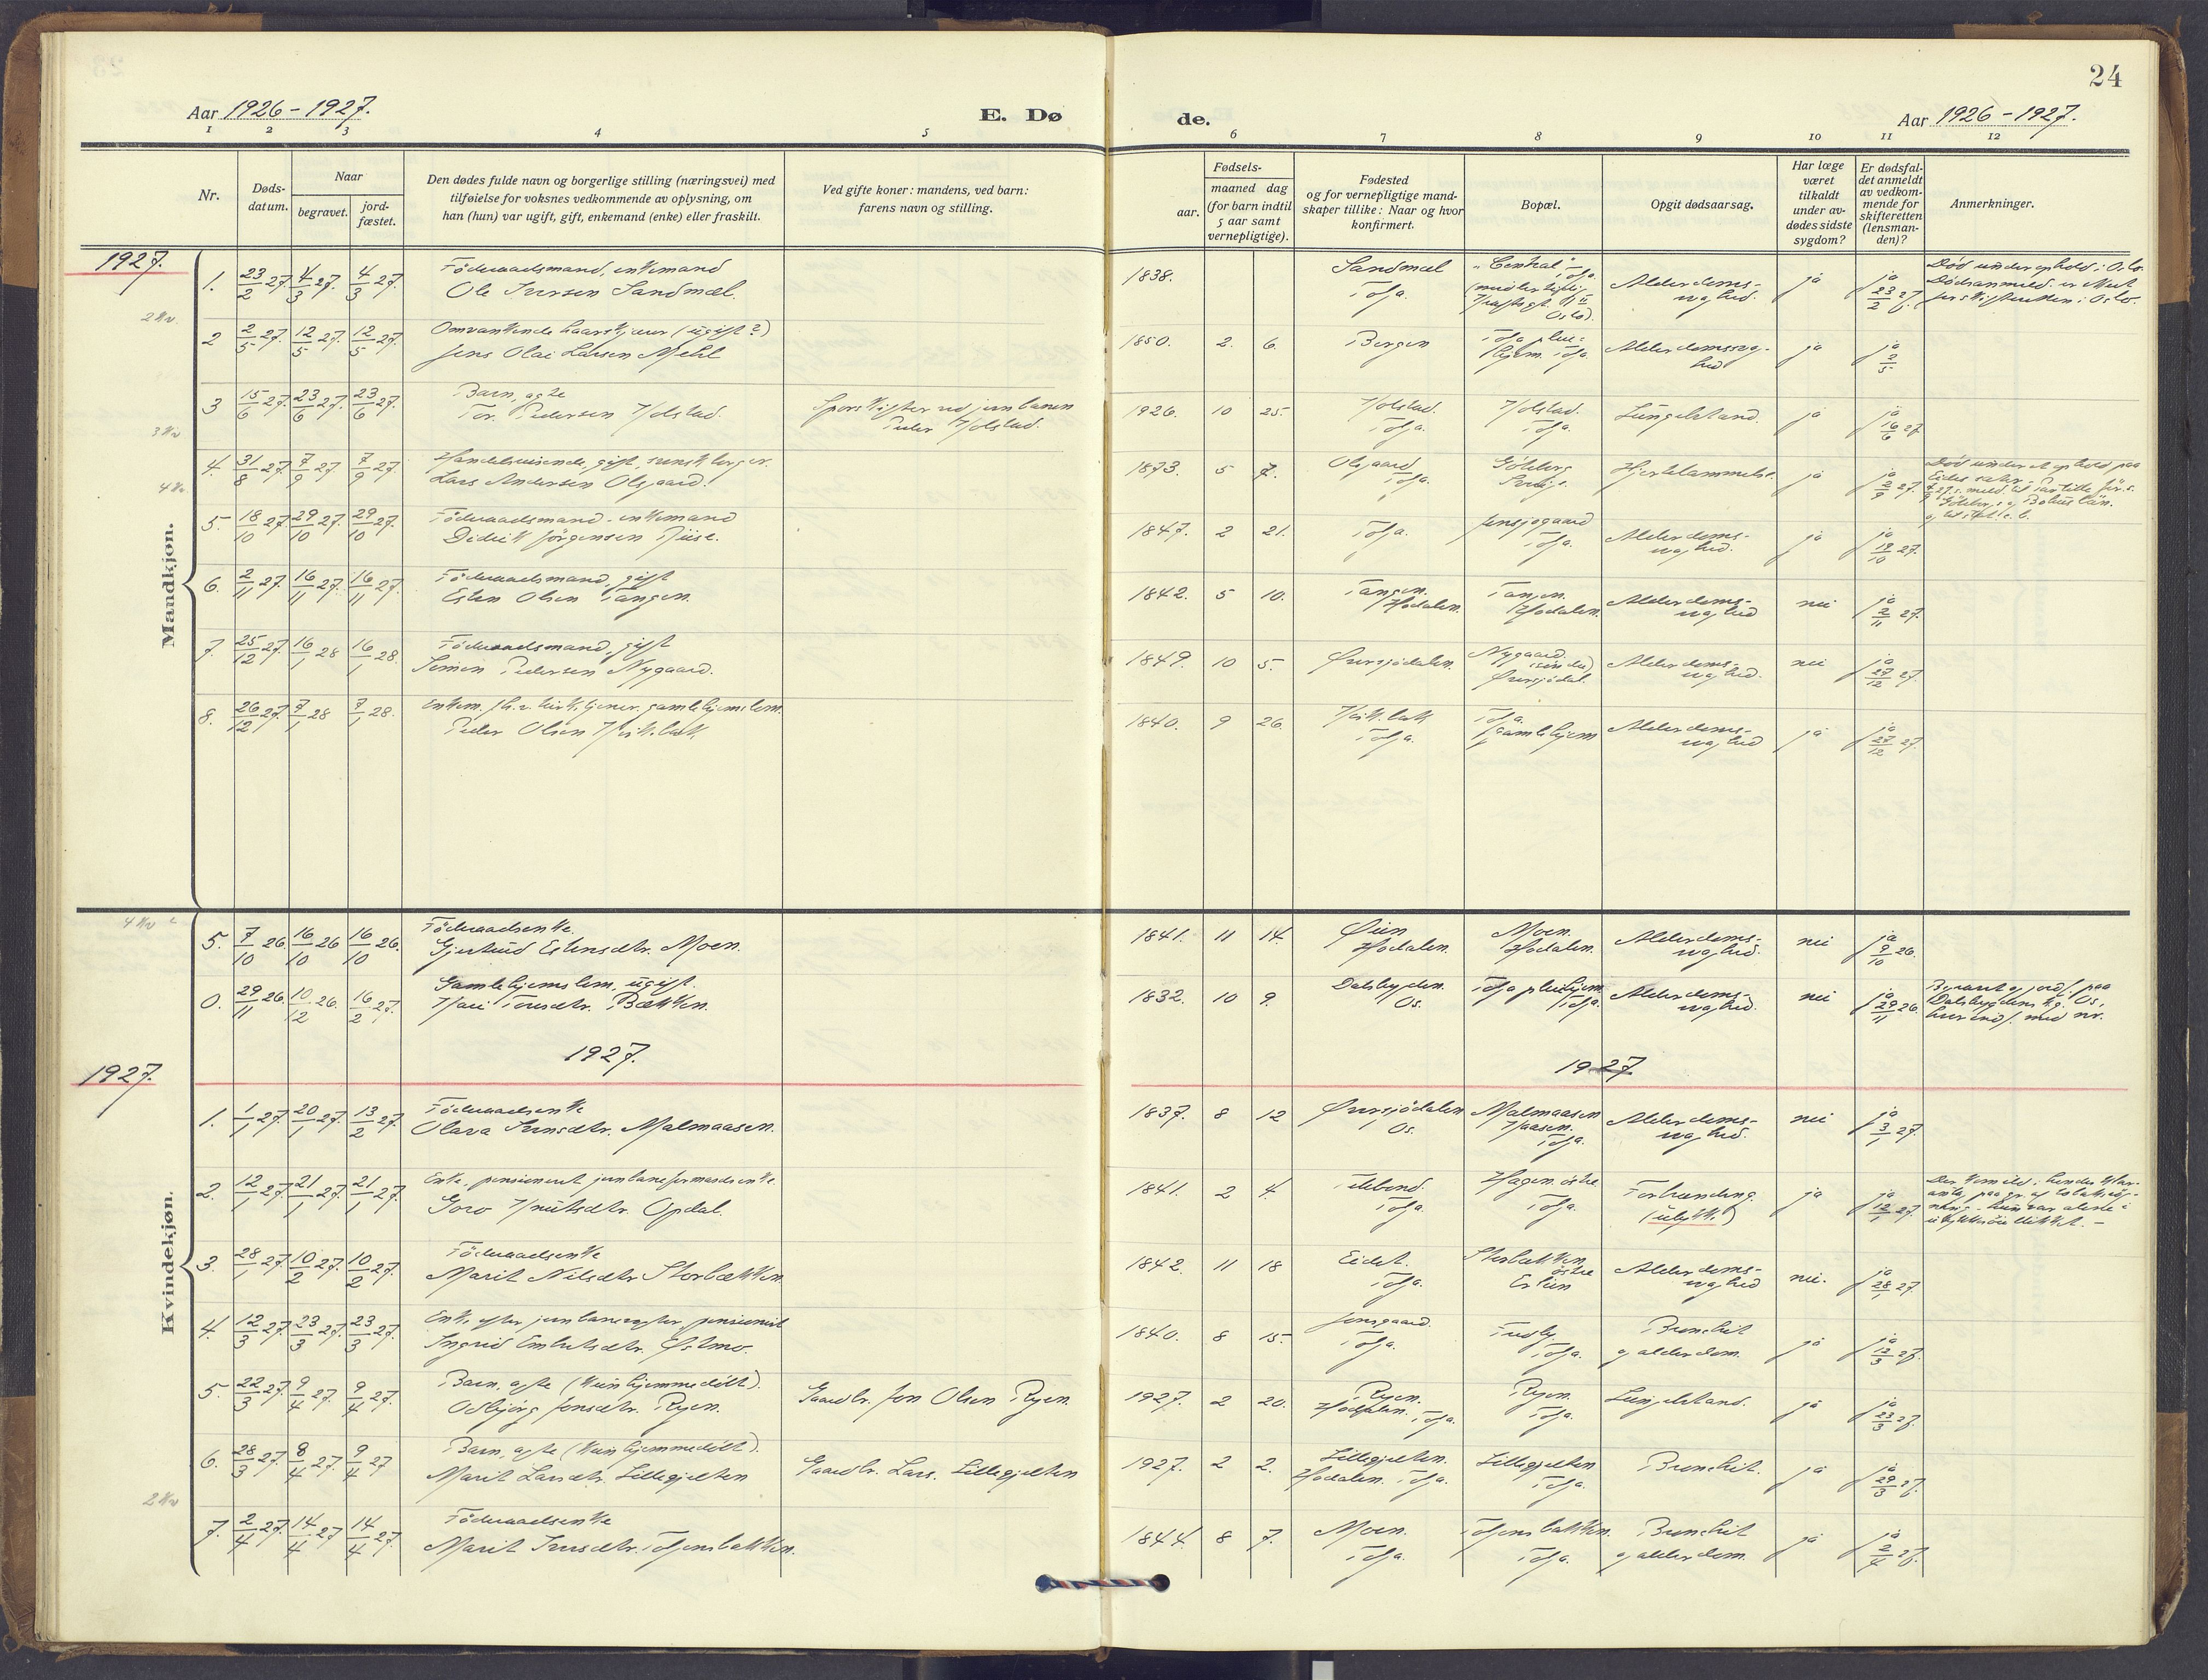 24
Aar 1926-1927.
E. Dø
de.
Aar 1926-1927.
1 2 3 4 5 6 7 8 9 10 11 12
Nr.
Døds-
datum.
Naar
begravet.
jord-
fæstet.
Den dødes fulde navn og borgerlige stilling (næringsvei) med
tilføielse for voksnes vedkommende av oplysning, om
han (hun) var ugift, gift, enkemand (enke) eller fraskilt.
Ved gifte koner: mandens, ved barn:
farens navn og stilling.
Fødsels-
aar.
maaned dag
(for barn indtil
5 aar samt
vernepligtige).
Fødested
og for vernepligtige mand-
skaper tillike: Naar og hvor
konfirmert.
Bopæl.
Opgit dødsaarsag.
Har læge
været
tilkaldt
under av-
dødes sidste
sygdom?
Er dødsfal-
det anmeldt
av vedkom-
mende for
skifteretten
(lensman-
den)?
Anmerkninger.
Mandkjøn.
1927.
1. 23/2 27. 4/3 27. 4/3 27. Föderaadsmand, enkemand
Ole Iversen Sandmæl.
1838. Sandmæl
Tolga. "Central", Tolga
Oslo). Alderdoms-
svaghed. ja ja 23/2 27. Död under ophold i Oslo.
2 2/5 27. 12/5 27. 12/5 27. Omvankende haarskjærer (ugift?)
Jens Olai Larsen Mehl
1850. 2. 6. Bergen Tolga pleie-
hjem. Tolga. Alderdomssvag-
hed ja ja 2/5
3 15/6 27. 23/6 27. 23/6 27. Barn, ægte
Tor. Pedersen Holstad. Sporskifter ved jernbanen
Peder Holstad.
1926. 10 25. Holstad.
Tolga. Holstad.
Tolga. Lungebetænd. ja ja 16/6 27.
4. 31/8 27. 7/9 27 7/9 27. Handelsreisende, gift, svensk borger.
Lars Andersen Olsgaard.
1873. 5 7. Olsgaard
Tolga. Göteborg
Sverige. Hjertelammelse. ja ja 2/9 27. Död under et ophold paa
5. 18/10 27. 29/10 27. 29/10 27. Föderaadsmand - enkemand
Didrik Jörgensen Riise.
1847. 2 21. Tolga. Jensgaard
Tolga. Alderdoms-
svaghed. ja ja 19/10 27.
6. 2/11 27. 16/11 27. 16/11 27. Föderaadsmand, gift
Esten Olsen Tangen.
1842. 5 10. Tangen.
Hodalen. Tangen.
Hodalen. Alderdoms-
svaghed nei ja 2/11 27.
7. 25/12 27. 16/1 28 16/1 28. Föderaadsmand, gift
Simen Pedersen Nygaard.
1849. 10 5. Øversjödalen. Nygaard.
Øversjödal. Alderdoms-
svaghed. nei ja 27/12 27.
8. 26/12 27. 7/1 28 7/1 28. Enkem. fh. v. kirketjener, gamlehjemslem.
Peder Olsen Kirkbak
1840. 9 26. Kirkbak
Tolga. Tolga.
gamlehjem Alderdoms-
svaghed ja ja 27/12 27.
Kvindekjøn.
5. 7/10 26. 16/10 26 16/10 26. Föderaadsenke
Gjertrud Estensdtr. Moen.
1841. 11 14. Øien
Hodalen. Moen.
Hodalen. Alderdoms-
svaghed. nei ja 9/10 26.
0. 29/11 26. 10/12 26. 16/2 27. Gamlehjemslem, ugift.
Kari Toresdtr. Bækken.
1832. 10 9. Dalsbygden.
Os. Tolga pleiehjem
Tolga. Alderdoms-
svaghed. nei ja 29/11 26. Begravet og jordf. paa
Dalsbygdens kg. Os,
1927.
1927.
1927
1. 1/1 27. 20/1 27. 13/2 27. Föderaadsenke
Olava Iversdtr. Malmaasen.
1837. 8 12 Øversjödalen
Os. Malmaasen
Tolga. Alderdoms-
svaghed. nei ja 3/1 27.
2. 12/1 27. 21/1 27. 21/1 27. Enke, pensioneret jernbaneformandsenke.
Goro Knutsdtr. Opdal.
1841. 2 4. Telebond.
Tolga. Hagen östre
Tolga. Forbrænding.
(ulykke) ja ja 12/1 27.
3. 28/1 27. 10/2 27. 10/2 27. Föderaadsenke
Marit Nilsdtr. Storbækken
1842. 11 18 Eidet.
Tolga. Storbækken
östre
Erlien Alderdoms-
svaghed nei. ja 28/1 27.
4. 12/3 27. 23/3 27. 23/3 27. Enke efter jernbanevogter, pensionist
Ingrid Embretsdtr. Østmo.
1840. 8 15. Jonsgaard.
Tolga. Tolga. Bronchit
og alderdom. ja ja 12/3 27.
5. 22/3 27. 9/4 27. 9/4 27. Barn, ægte (kun hjemmedöbt).
Odbjörg Jonsdtr. Ryen. Gaardbr. Jon Olsen Ryen.
1927. 2 20. Ryen.
Hodalen. Tolga. Ryen.
Tolga. Lungebetænd. ja ja 23/3 27.
6. 28/3 27. 8/4 27. 9/4 27 Barn, ægte (kun hjemmedöbt).
Marit Larsdtr. Lillegjelten Gaardbr. Lars. Lillegjelten
1927. 2 2. Lillegjelten.
Hodalen. Tolga. Lillegjelten
Tolga. Bronchit. ja ja 29/3 27.
7. 2/4 27. 14/4 27 14/4 27. Föderaadsenke
Marit Iversdtr. Tolgensbakken.
1844. 8 7. Moen.
Tolga. Tolgensbakken.
Tolga. Bronchit
og alderdom. ja ja 2/4 27.